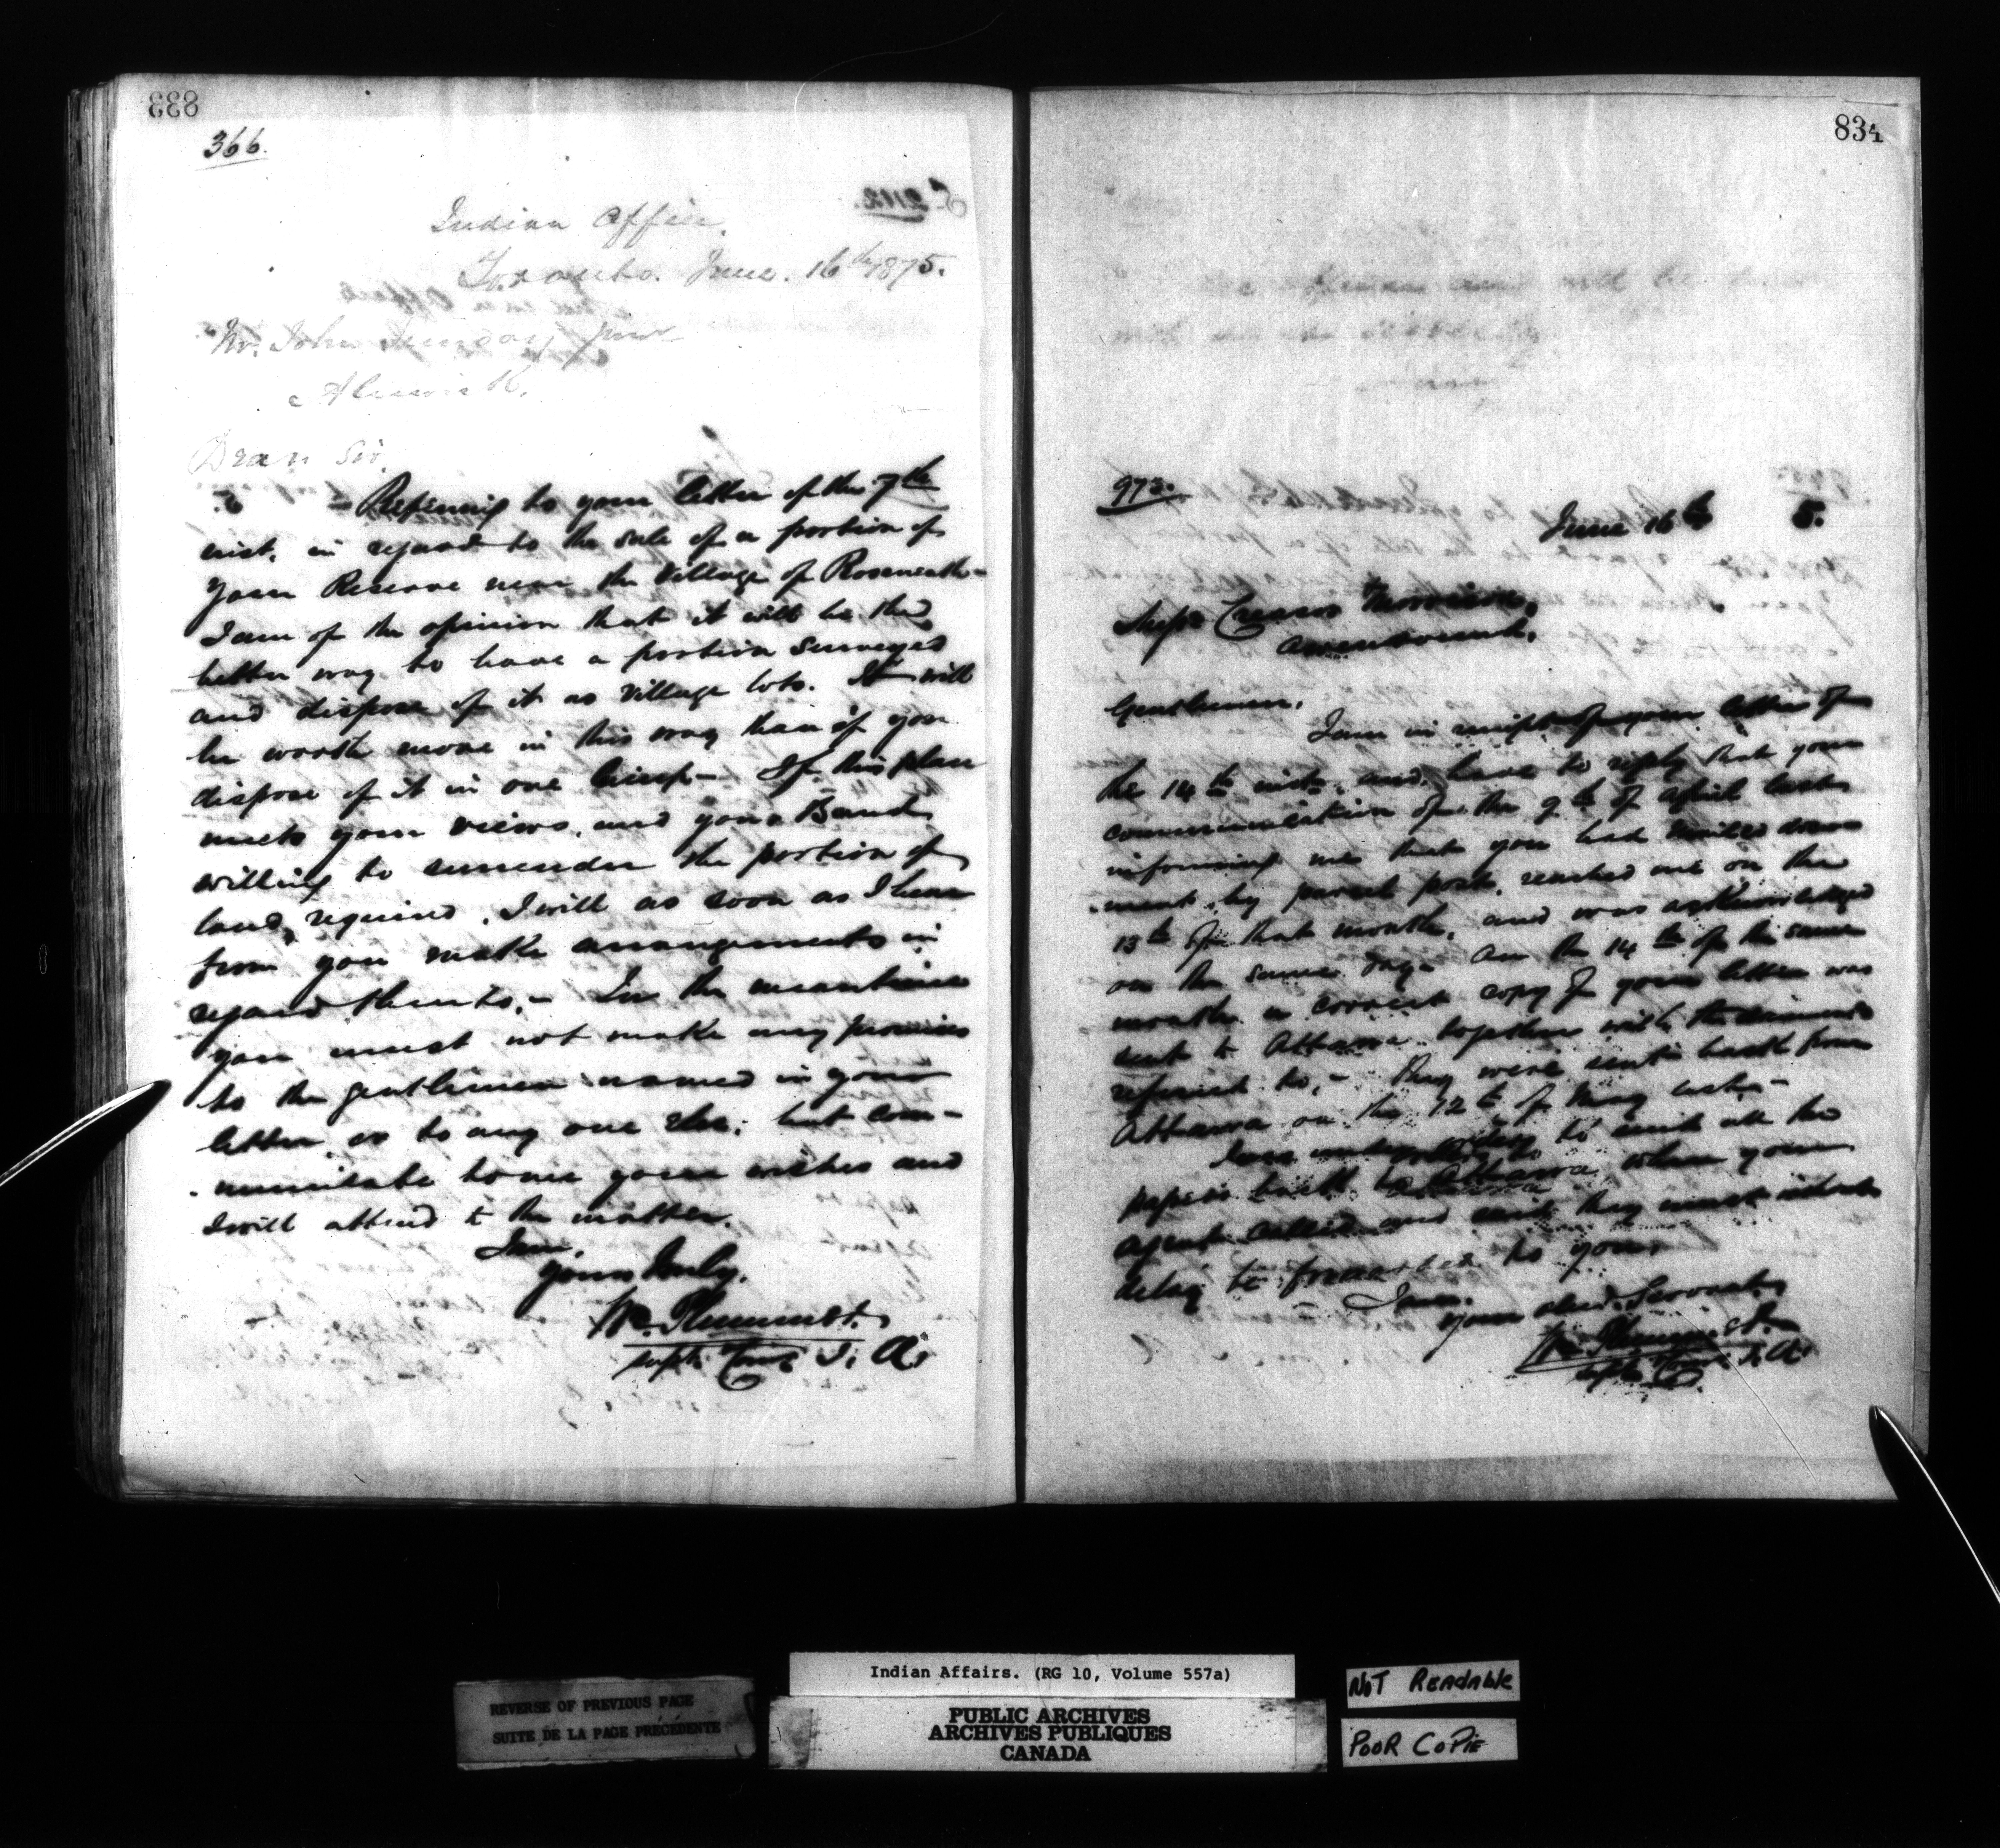 833
366.
Indian Office,
Toronto. June. 16th 1875.
Mr. John Sunday junr
Alnwick,
Dear Sir,
Referring to your letter of the 7th
inst. in regard to the sale of a portion of
your Reserve near the Village of Roseneath-
I am of the opinion that it will be the
better way to have a portion surveyed
and dispose of it as village lots. It will
be worth more in this way than if you
dispose of it in one lump- If this plan
meets your views, and your Band
willing to surrender the portion of
land required, I will as soon as I hear
from you make arrangements in
regard thereto,- In the meantime
you must not make any promises
to the gentlemen named in your
letter, or to any one else: but com-
municate to me your wishes and
I will attend to the matter.
I am,
Yours truly,
Wm. Plummer.
Supt. Comr I. A.
834
973.
June 16th 5.
Messrs
Gentlemen,
I am in receipt of your letter of
the 14th inst. and have to reply that your
communication of the 9th of April last
informing me that you had mailed
by parcel post, reached me on the
13th of that month, and was acknowledged
on the same day- On the 14th of the same
month a correct copy of your letter was
sent to Ottawa together with the
referred to,- They were sent back from
Ottawa on the 12th of May
to the
papers back to Ottawa when your
agent called and they must
delay be forwarded to you.
I am,
Your obed. Servant,
Wm. Plummer
Supt. Comr I. A.
Indian Affairs. (RG 10, Volume 557a)
REVERSE OF PREVIOUS PAGE
SUITE DE LA PAGE PRÉCÉDENTE
PUBLIC ARCHIVES
ARCHIVES PUBLIQUES
CANADA
NOT READABLE
POOR COPIE